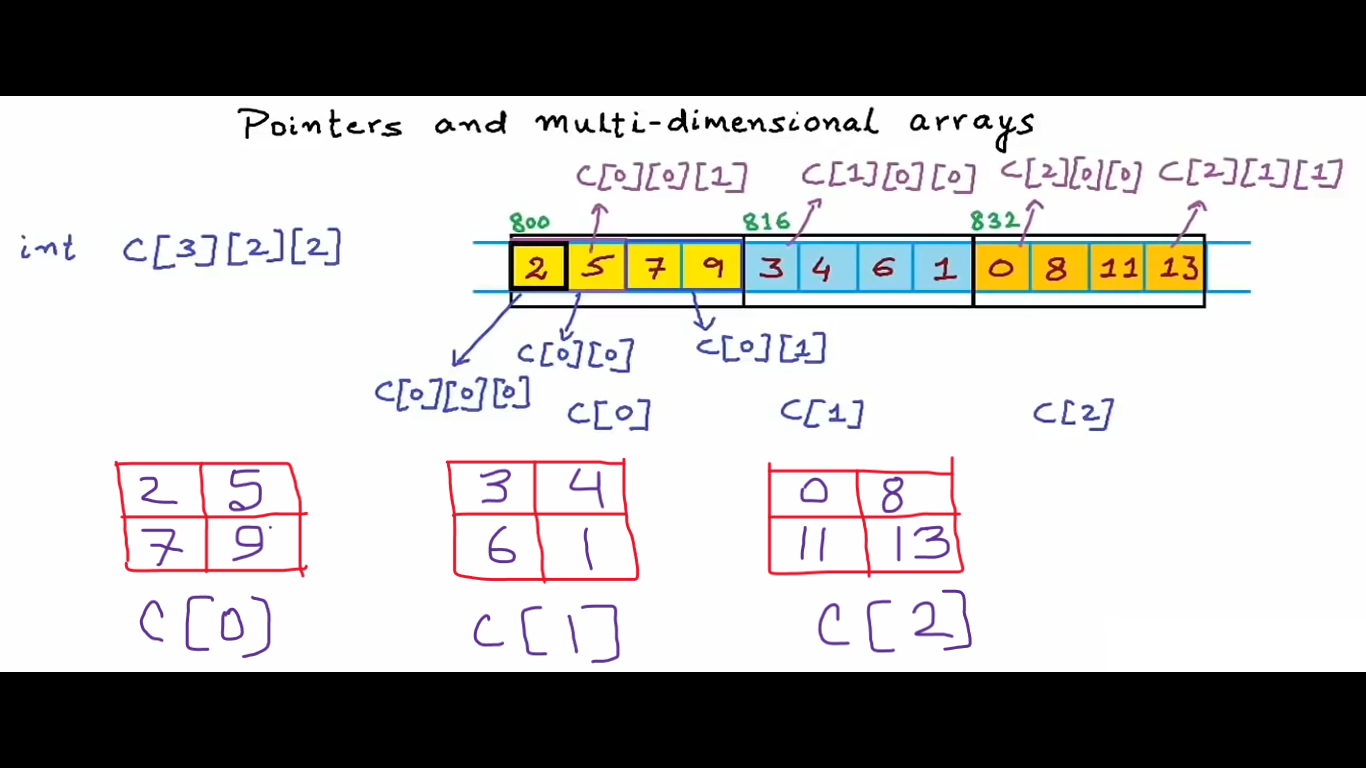 Pointers and multi-dimensional arrays
C[0][0][1] C[1][0][0] C[2][0][0] C[2][1][1]
800 816 832
int C[3][2][2]
2 5 7 9 3 4 6 1 0 8 11 13
C[0][0] C[0][1]
C[0][0][0]
C[0] C[1] C[2]
2 5 3 4 0 8
7 9 6 1 11 13
C[0] C[1] C[2]